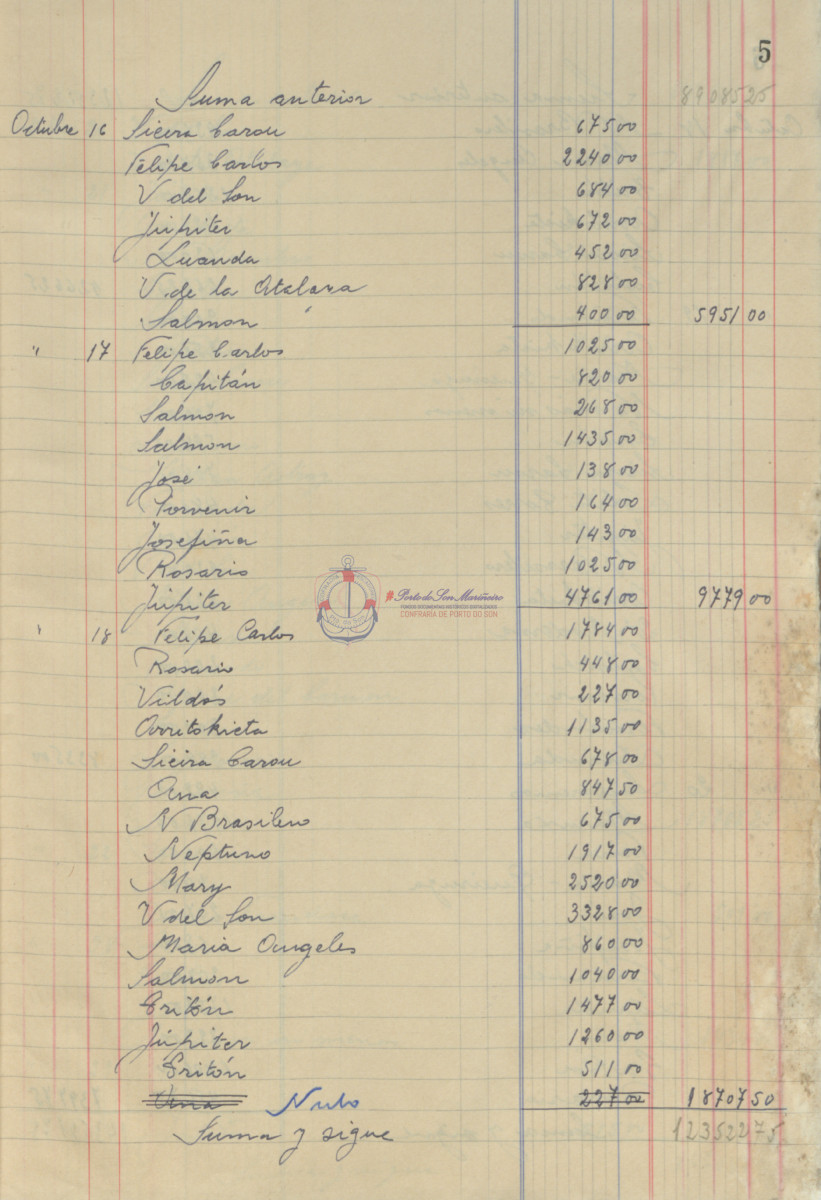 5
Suma anterior 8908525
Octubre 16 Sieira Carou 675 00
Felipe Carlos 2240 00
V del Son 684 00
Júpiter 672 00
Luanda 452 00
V. de la Atalaya 828 00
Salmon 400 00 5951 00
" 17 Felipe Carlos 1025 00
Capitán 820 00
Salmon 268 00
Salmon 1435 00
José 138 00
Porvenir 164 00
Josefina 143 00
Rosario 1025 00
Júpiter 4761 00 9779 00
#Porto do Son Mariñeiro
FONDOS DOCUMENTAIS HISTÓRICOS DIXITALIZADOS
CONFRARÍA DE PORTO DO SON
" 18 Felipe Carlos 1784 00
Rosario 448 00
Valdós 227 00
Arritokieta 1135 00
Sieira Carou 678 00
Ana 847 50
N Brasileno 675 00
Neptuno 1917 00
Mary 2520 00
V del Son 3328 00
Maria Angeles 860 00
Salmon 1040 00
Tritón 1477 00
Júpiter 1260 00
Tritón 511 00
Nulo 227 00 18707 50
Suma y sigue 12352275